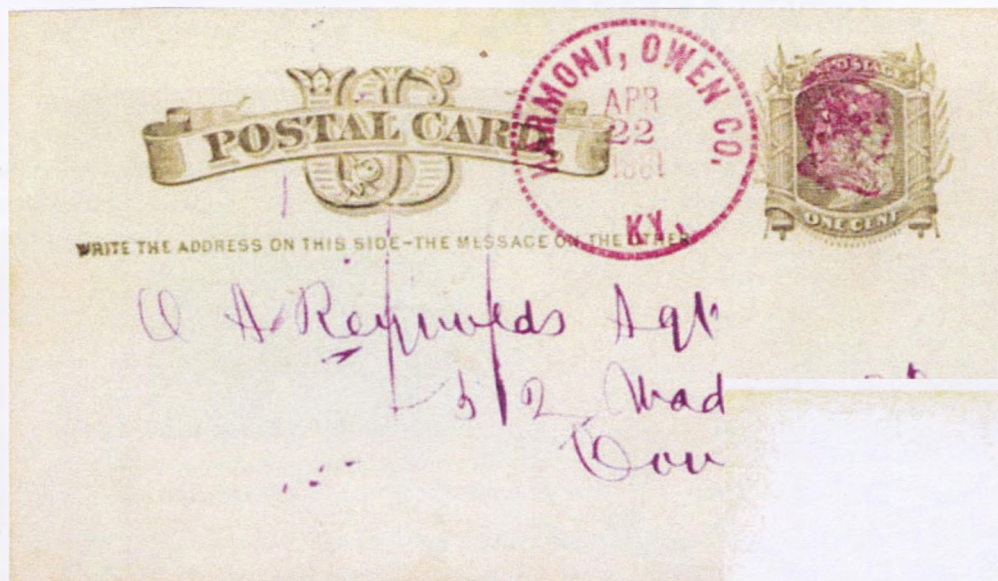 US
POSTAL CARD
HARMONY, OWEN CO.
APR
22
1881
KY.
U.S. POSTAGE
ONE CENT
WRITE THE ADDRESS ON THIS SIDE-THE MESSAGE ON THE OTHER
A Reynolds Agt
512 Mad
Cov